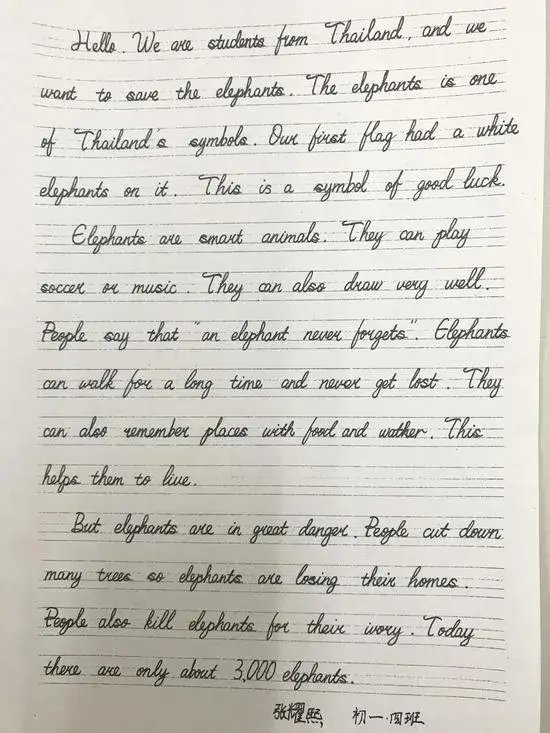 Hello. We are students from Thailand, and we
want to save the elephants. The elephants is one
of Thailand's symbols. Our first flag had a white
elephants on it. This is a symbol of good luck.
Elephants are smart animals. They can play
soccer or music. They can also draw very well.
People say that "an elephant never forgets". Elephants
can walk for a long time and never get lost. They
can also remember places with food and wather. This
helps them to live.
But elephants are in great danger. People cut down
many trees so elephants are losing their homes.
People also kill elephants for their ivory. Today
there are only about 3,000 elephants.
张耀熙 初一·四班